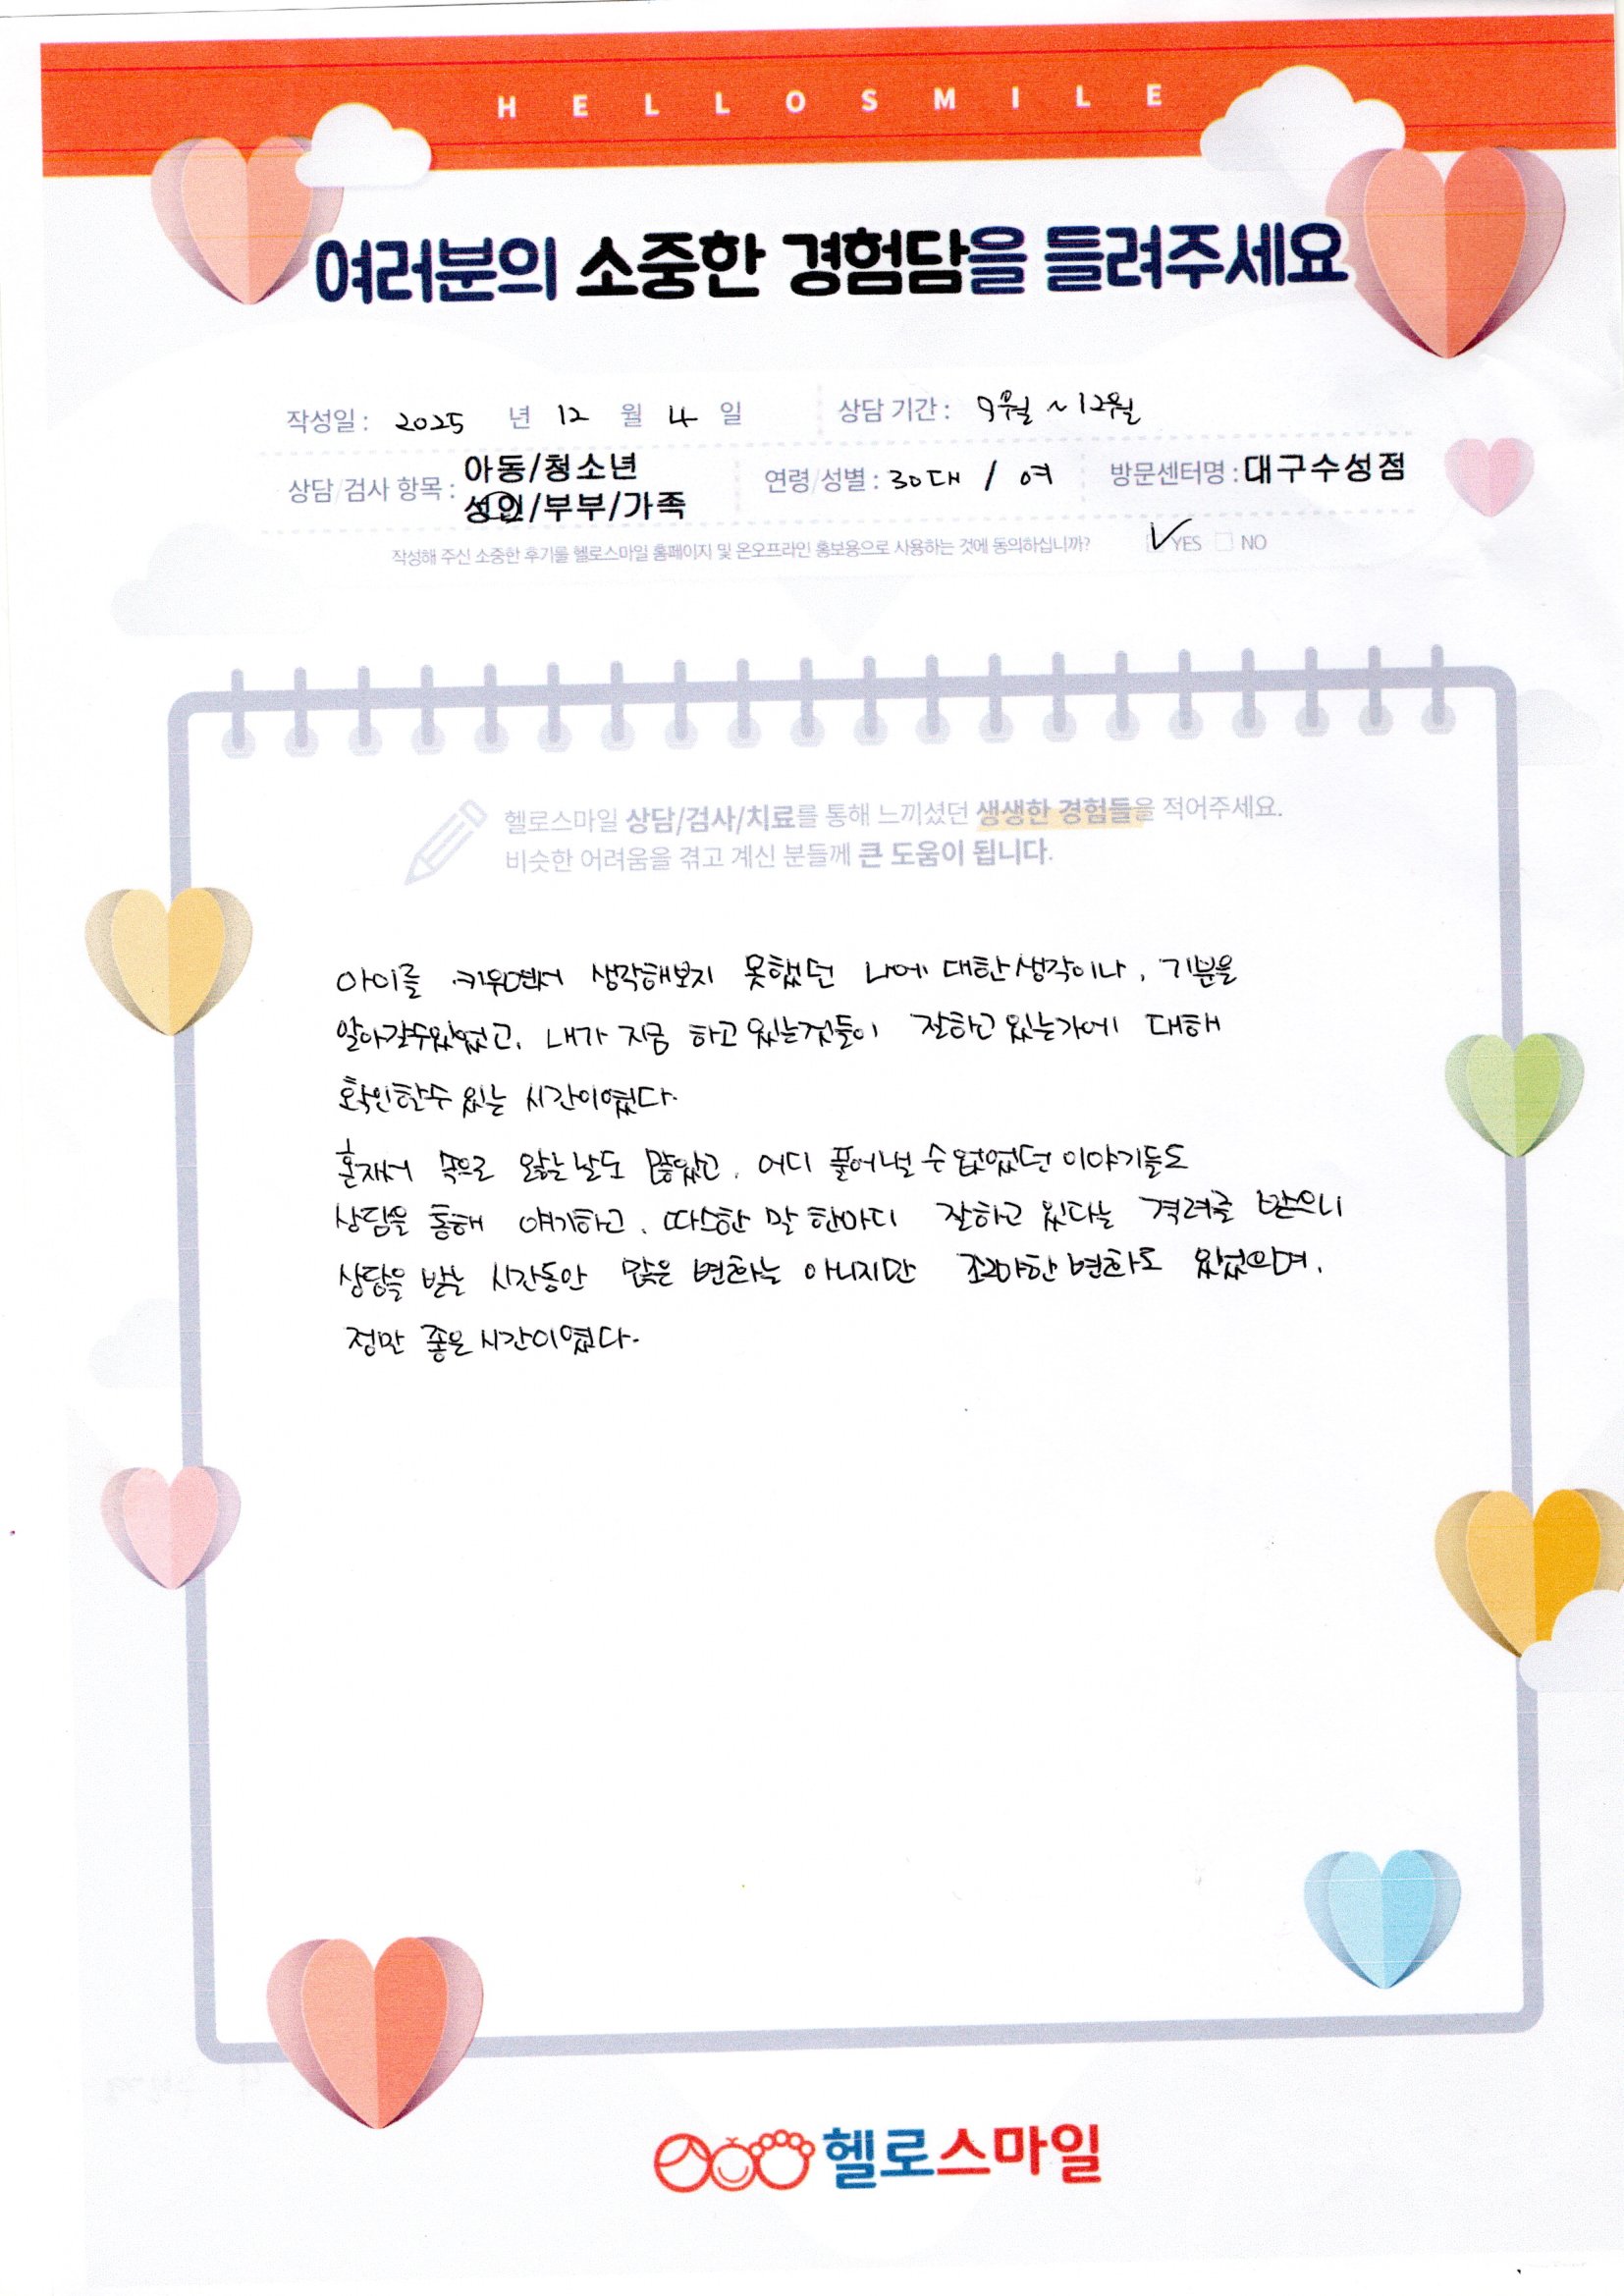 HELLOSMILE
여러분의 소중한 경험담을 들려주세요
작성일 : 2025 년 12 월 4 일 상담 기간 : 9월 ~ 12월
상담/검사 항목 : 아동/청소년 성인/부부/가족 연령/성별 : 30대 / 여 방문센터명 : 대구수성점
작성해 주신 소중한 후기를 헬로스마일 홈페이지 및 온오프라인 홍보용으로 사용하는 것에 동의하십니까? YES NO
헬로스마일 상담/검사/치료를 통해 느끼셨던 생생한 경험들을 적어주세요.
비슷한 어려움을 겪고 계신 분들께 큰 도움이 됩니다.
아이를 키우면서 생각해보지 못했던 나에 대한 생각이나, 기분을
알아갈수있었고, 내가 지금 하고 있는것들이 잘하고 있는가에 대해
확인할수 있는 시간이였다.
혼자서 속으로 앓는 날도 많았고, 어디 풀어낼 수 없었던 이야기들도
상담을 통해 얘기하고, 따스한 말 한마디 잘하고 있다는 격려를 받으니
상담을 받는 시간동안 많은 변화는 아니지만 조그마한 변화도 있었으며,
정말 좋은 시간이였다.
헬로스마일